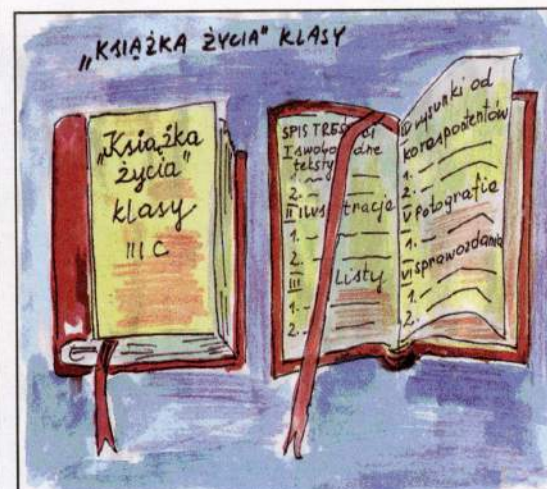 „KSIĄŻKA ŻYCIA" KLASY
„Książka
życia"
klasy
III C
SPIS TREŚCI
I swobodne
teksty
1.
2.
II ilustracje
1.
2.
III listy
1.
2.
IV rysunki od
korespondentów
1.
2.
V fotografie
1.
2.
VI sprawozdania
1.
2.